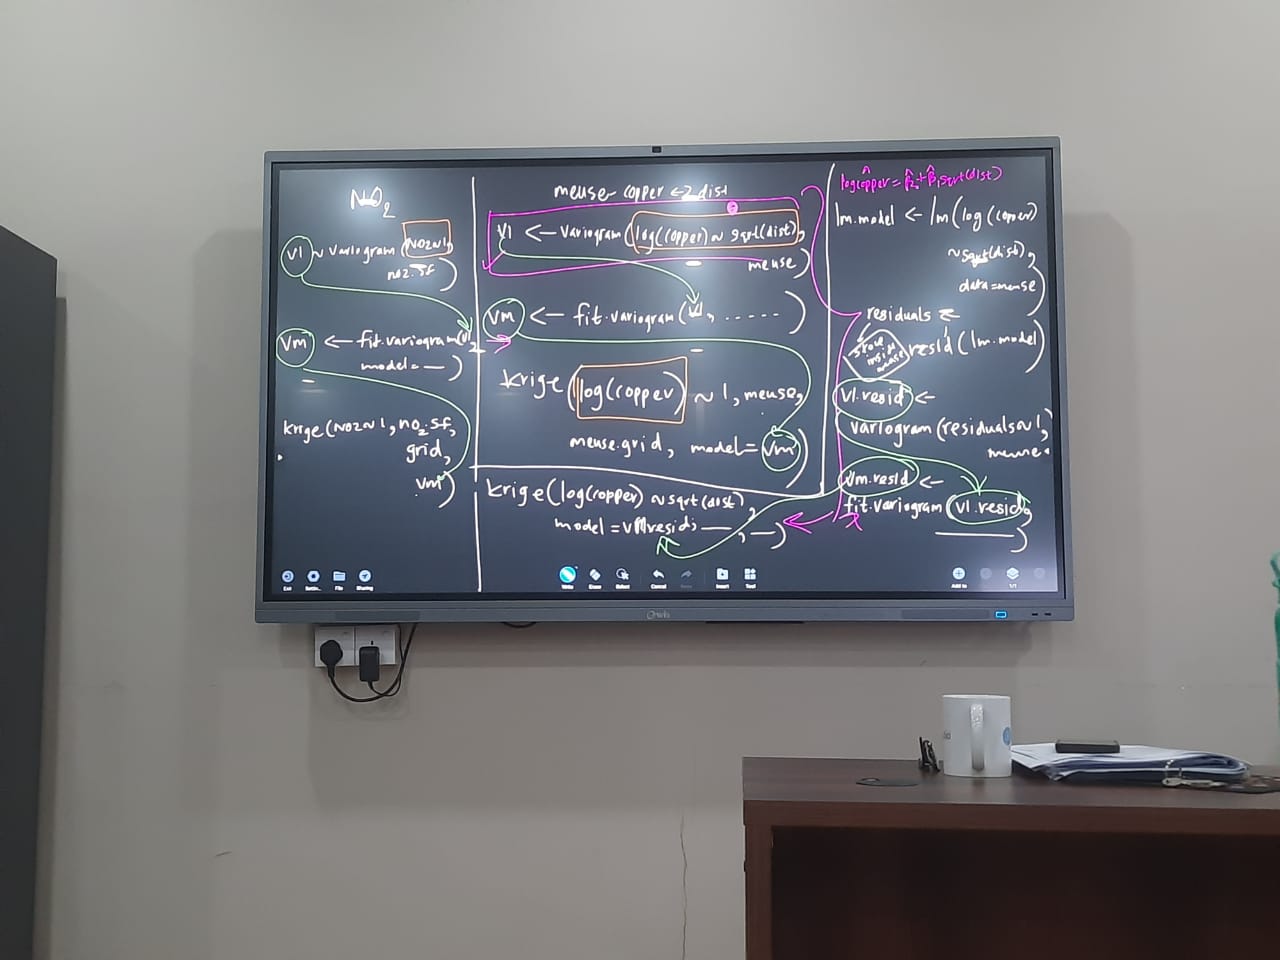 NO2
V1 ~ variogram (NO2~1,
no2.sf)
Vm ← fit.variogram(V1,
model = — )
krige(NO2~1, no2.sf,
grid,
vm)
meuse- copper ↔ dist
V1 ← variogram (log(copper) ~ sqrt(dist),
meuse)
Vm ← fit.variogram (V1, ..... )
krige (log(copper) ~ 1, meuse,
meuse.grid, model = Vm)
krige(log(copper) ~ sqrt(dist),
—, —)
logcopper = + sqrt(dist)
lm.model ← lm(log(copper)
~ sqrt(dist),
data=meuse)
residuals ←
store
inside
meuse
resid (lm.model)
V1.resid ←
variogram (residuals~1,
meuse
Vm.resid ←
fit.variogram (V1.resid,
)
Exit
File
Sharing
Write
Erase
Select
Cancel
Insert
Tool
Add to
1/1